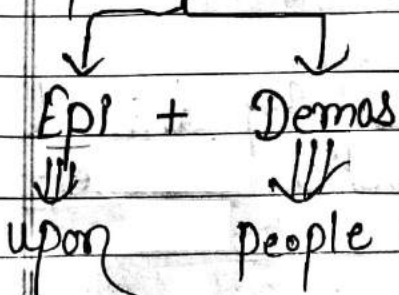 Epi + Demos
upon people